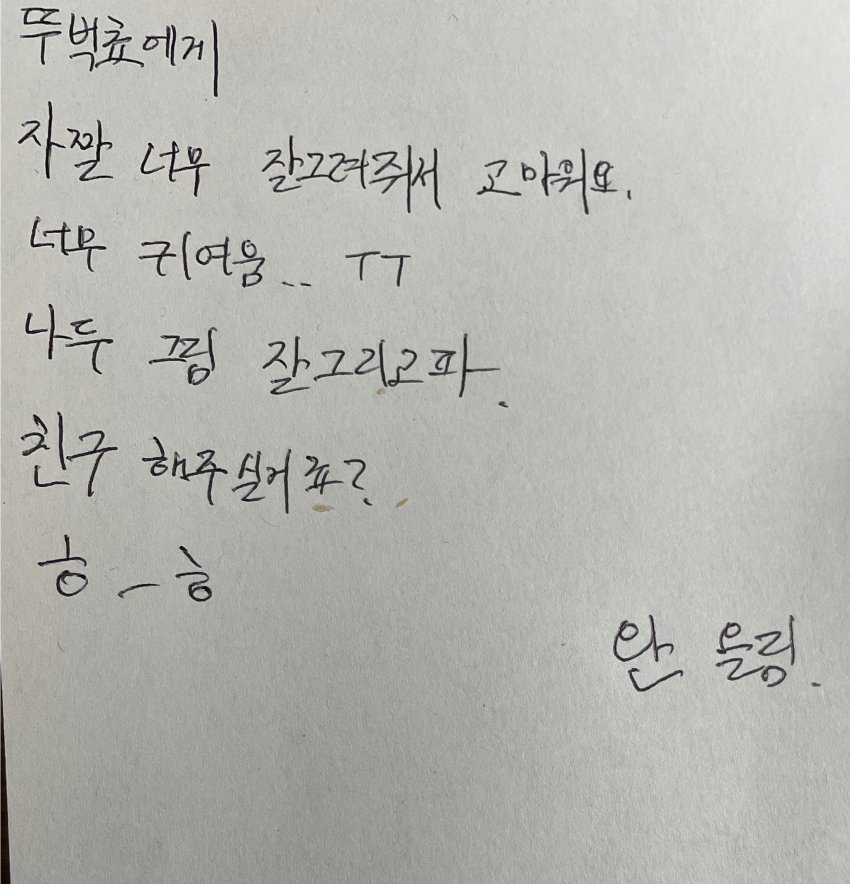 뚜벅쵸에게
자짤 너무 잘그려줘서 고마워요.
너무 귀여움.. ㅜㅜ
나두 끄림 잘그리고파.
친구 해주실어죠?
ㅎ_ㅎ
안 올림.